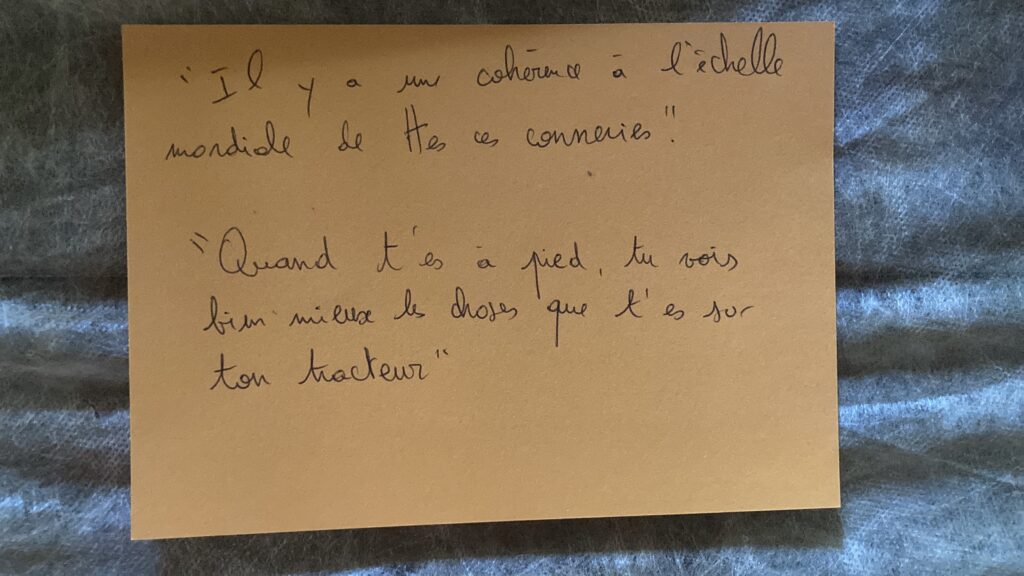 "Il y a une cohérence à l'échelle
mondiale de ttes ces conneries".
"Quand t'es à pied, tu vois
bien mieux les choses que t'es sur
ton tracteur"